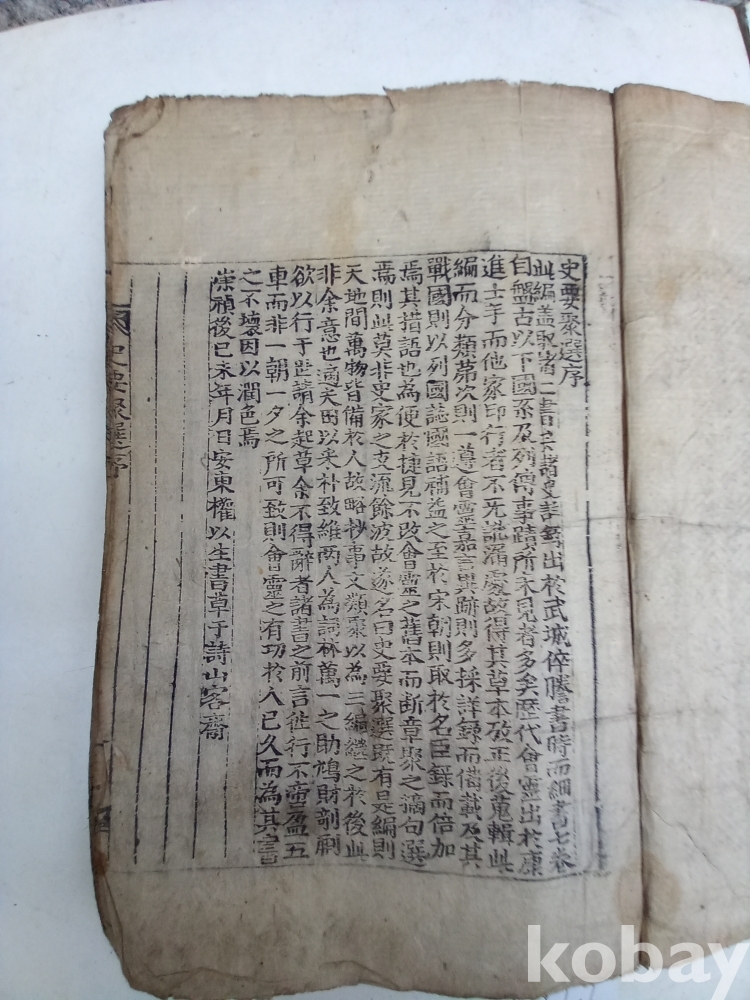 史要聚選序
此編盖取諸二書諸史記出於武城倅謄書時而細書七卷
自盤古以下國系及列傳事蹟所未見者多矣歷代會靈出於康
進士手而他家印行者不免訛漏處故得其草本改正後蒐輯此
編而分類第次則一遵會靈嘉言異跡則多採詳錄而俻載及其
戰國則以列國誌國語補益之至於宋朝則取於名臣錄而倍加
焉其措語也為便於捷見不改會靈之舊本而断章聚之摘句選
焉則此莫非史家之支流餘波故遂名曰史要聚選既有是編則
天地間萬物皆備於人故略抄事文類聚以為三編継之於後此
非余意也適矣田以采朴致維两人為詞林萬一之助鳩財剞劂
欲以行于世請余起草余不得辭者諸書之前言徃行不啻盈五
車而非一朝一夕之所可致則會靈之有功於人已久而為其言
之不壞因以潤色焉
崇禎後己未年月日安東權以生書草于詩山客齋
史要聚選序
kobay